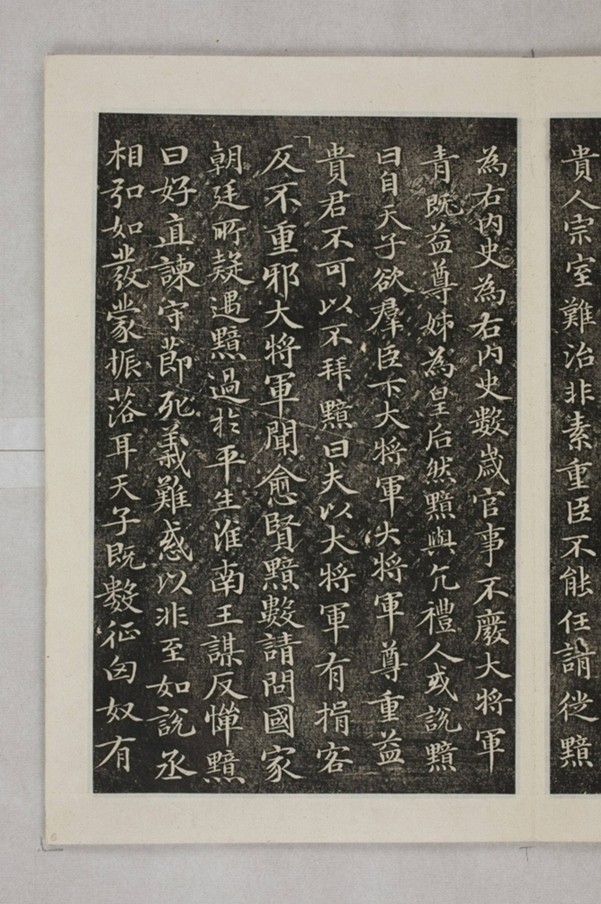 貴人宗室難治非素重臣不能任請徙黯
為右內史為右內史數歲官事不廢大將軍
青既益尊姊為皇后然黯與亢禮人或說黯
曰自天子欲羣臣下大將軍大將軍尊重益
貴君不可以不拜黯曰夫以大將軍有揖客
反不重邪大將軍聞愈賢黯數請問國家
朝廷所疑遇黯過於平生淮南王謀反憚黯
曰好直諫守節死義難惑以非至如說丞
相弘如發蒙振落耳天子既數征匈奴有